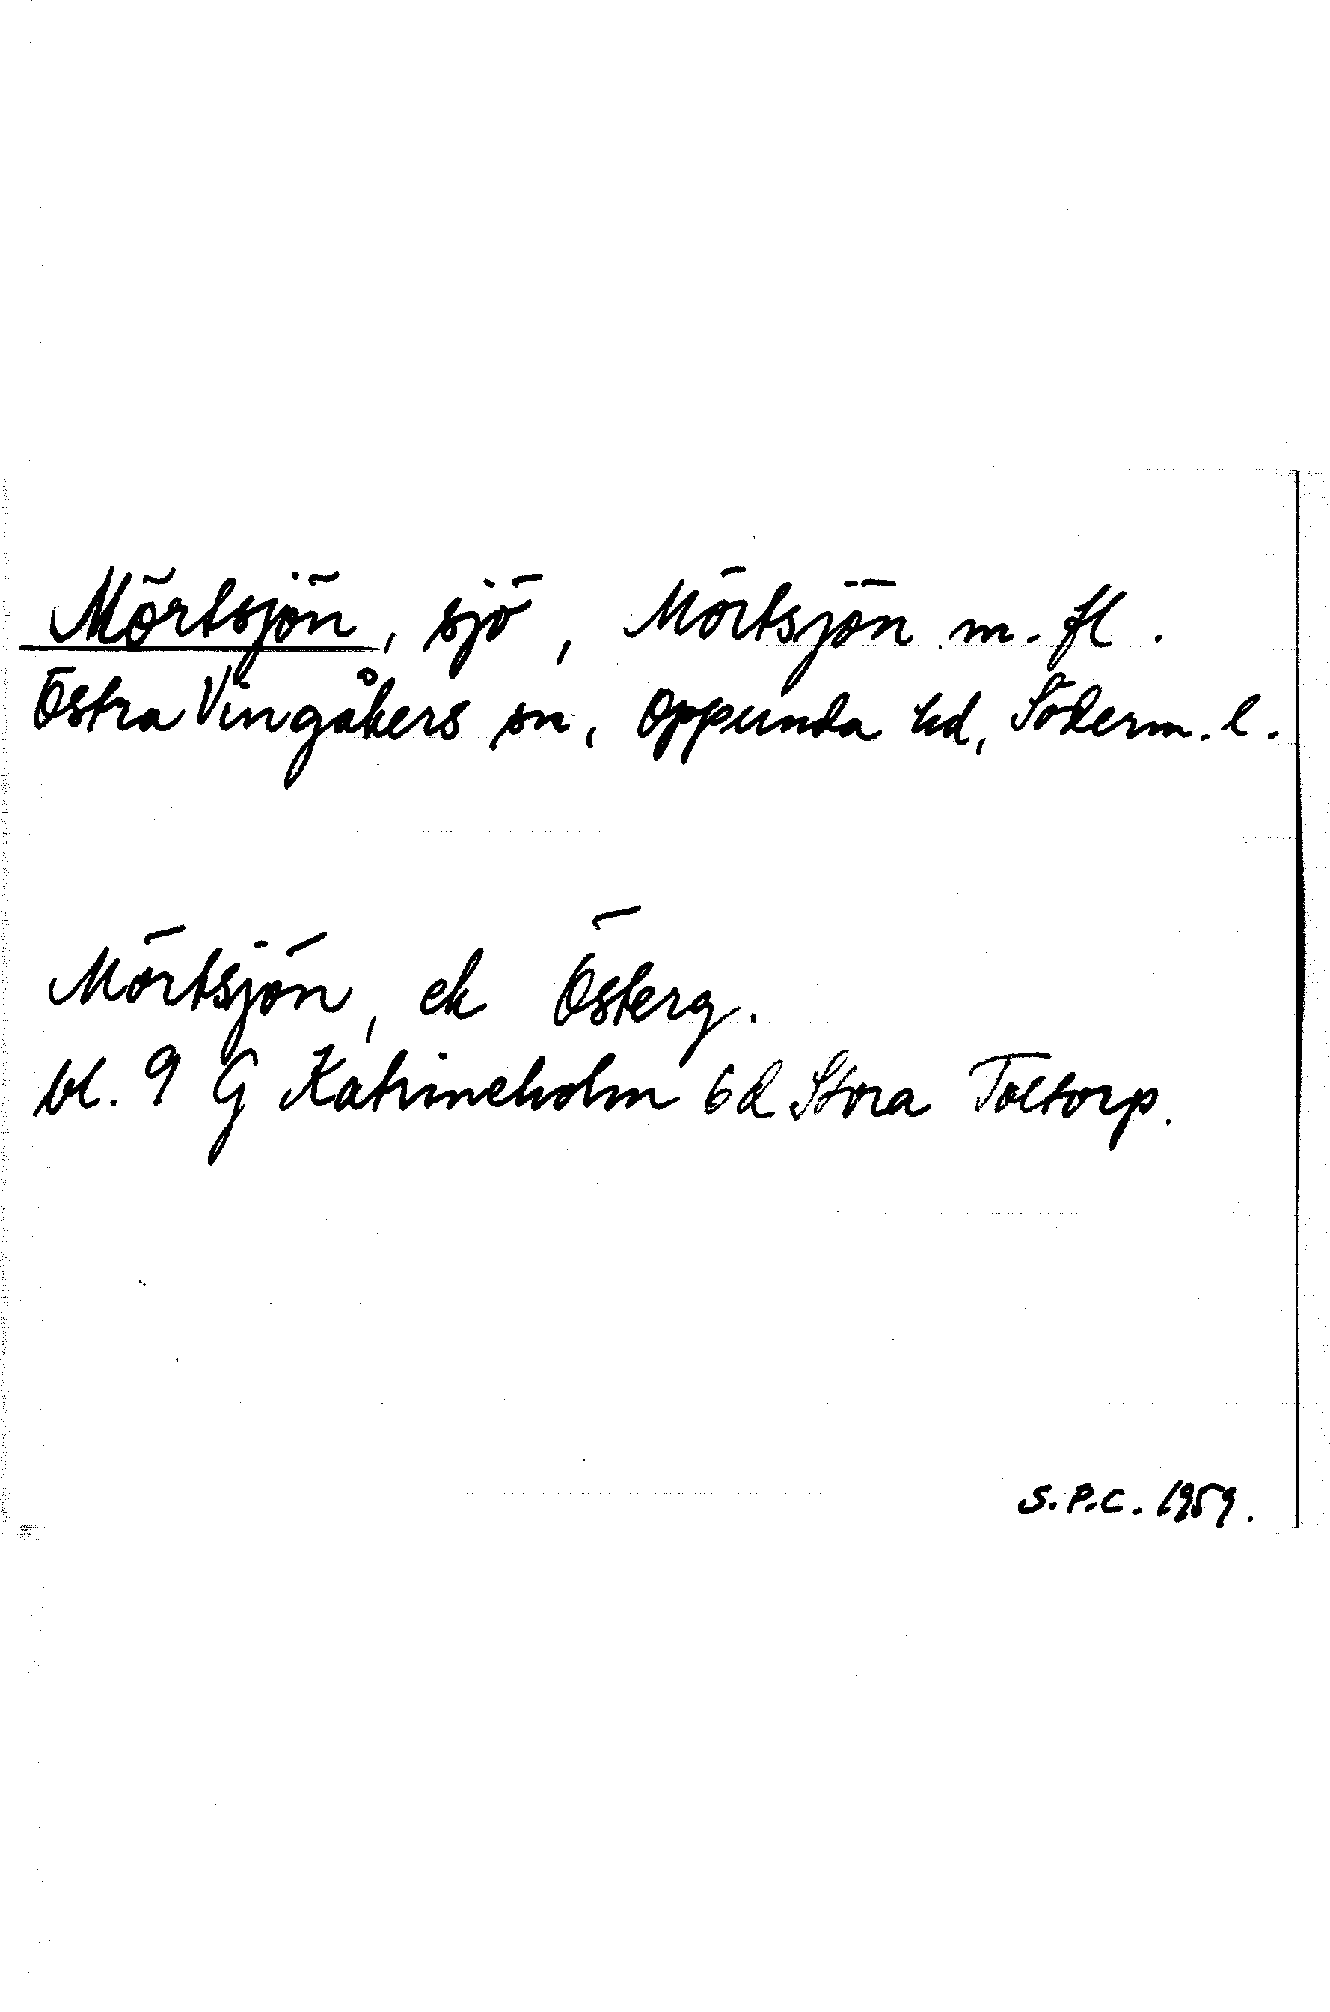 Mörtsjön, sjö, Mörtsjön m. fl.
Östra Vingåkers sn, Oppunda hd, Söderm. l.
Mörtsjön, ek Österg.
bl. 9 G Katrineholm 6d Stora Toltorp.
S.P.C. 1959.